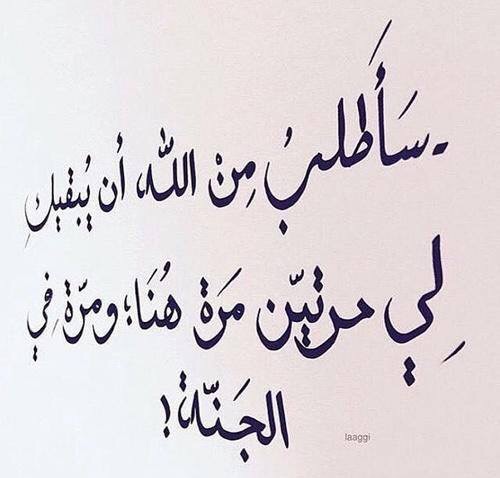 - سَأَطلبُ مِنْ الله، أن يُبقيكِ
لِي مرتيّن مَرة هُنَا؛ ومرّة فِي
الجَنّة!
laaggi